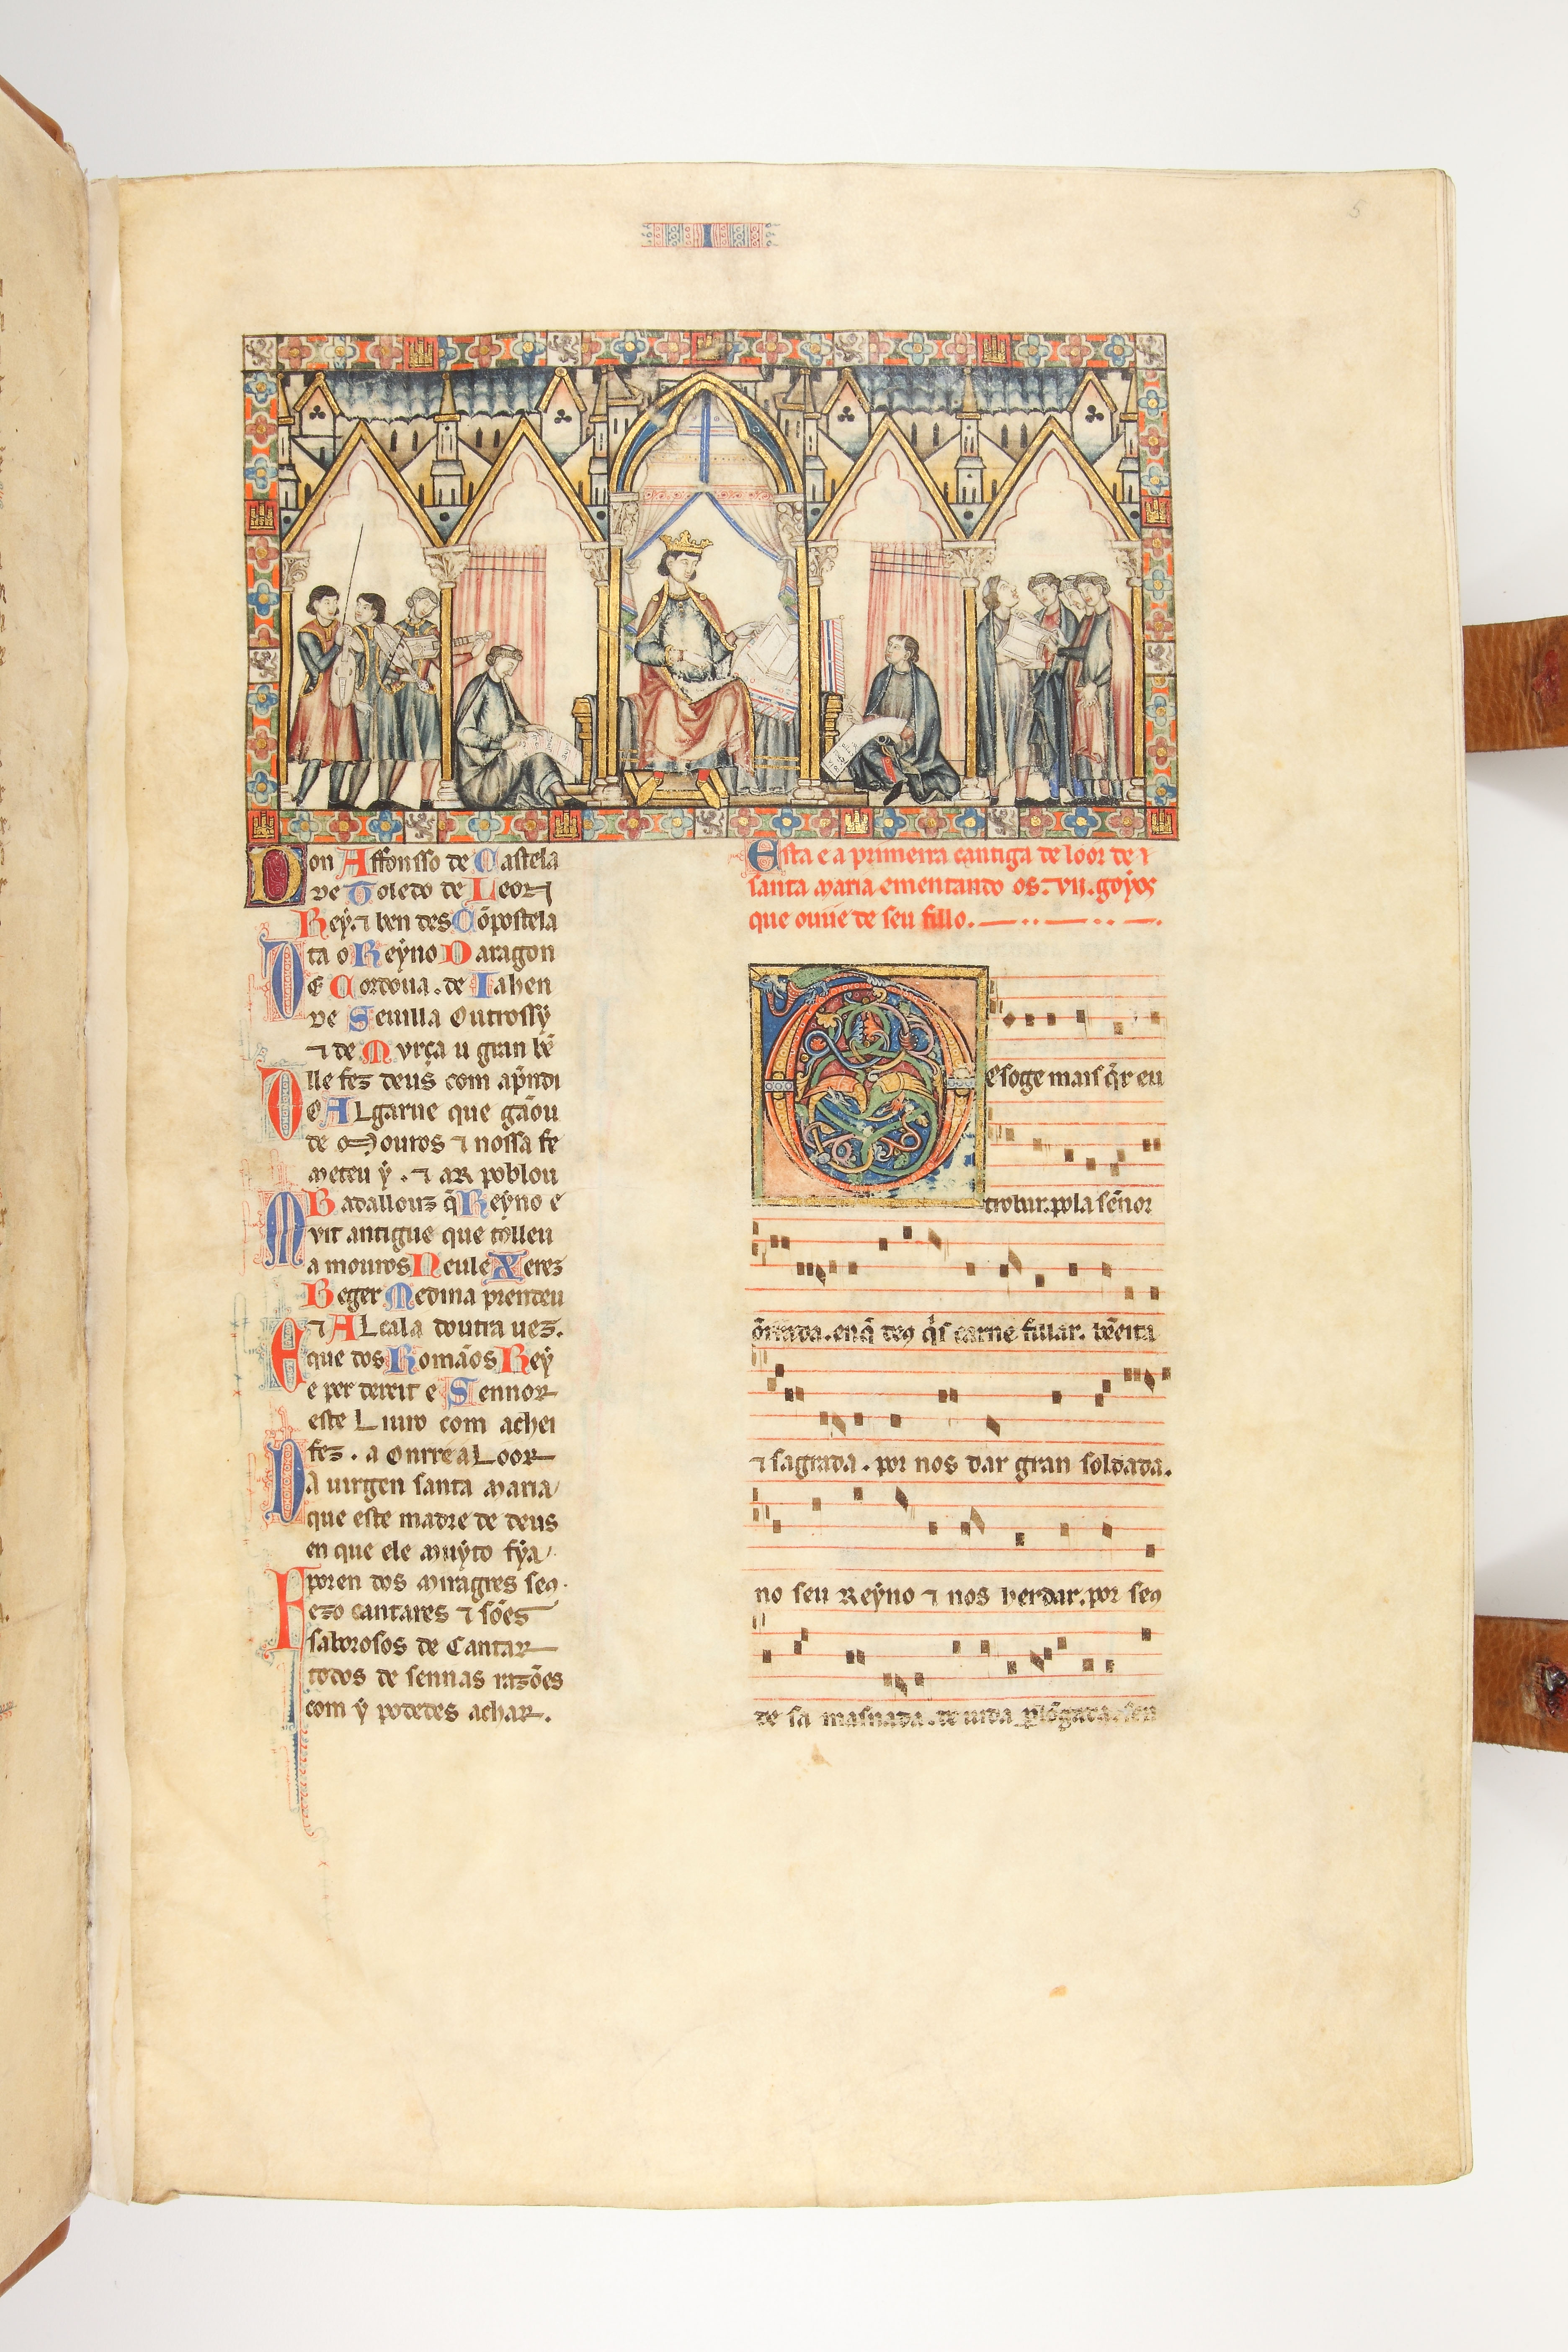 5
I
Don Affonsso de Castela
de Toledo de Leon
Rey ⁊ ben des Cõpostela
ta o Reyno Daragon
De Cordoua. de Iahen
de Seuilla Outrossy
⁊ de Murça u gran bẽ
lle fez deus com aprendi
Do Algarue que gãou
de mouros ⁊ nossa fe
meteu y. ⁊ ar poblou
Badallouz q̃ Reyno e
Muit antigue que tolleu
a mouros Neul e Xerez
Beger Medina prendeu
⁊ Alcala doutra uez.
E que dos Romãos Rey
e per dereit e Sennor
este Liuro com achei
fez. a Onrr e a Loor
Da uirgen santa maria
que este madre de deus
en que ele muyto fya
poren dos miragres seꝯ.
Fezo cantares ⁊ sões
saborosos de Cantar
todos de sennas razões
com y podedes achar.
Esta e a primeira cantiga de loor de
santa maria ementando os. vii. goyos
que ouue de seu fillo.
Des oge mais q̃r eu
trobar. pola sennor
onrrada. en q̃ deꝯ q̇s carne fillar. bẽeita
⁊ sagrada. por nos dar gran soldada.
no seu Reyno ⁊ nos herdar. por seꝯ
de sa masnada. de uida plõgada. sen